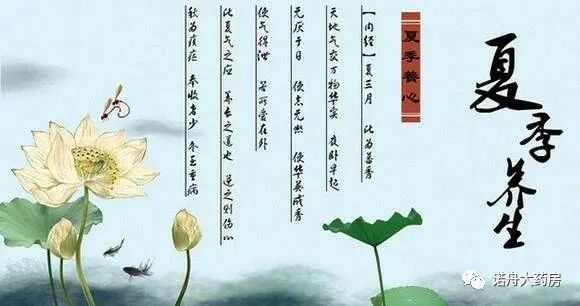 夏季养生
夏季養心
【内经】夏三月 此为蕃秀
天地气交万物华实 夜卧早起
无厌于日 使志无怒 使华英成秀
使气得泄 若所爱在外
此夏气之应 养长之道也 逆之则伤心
秋为痎疟 奉收者少 冬至重病
诺舟大药房